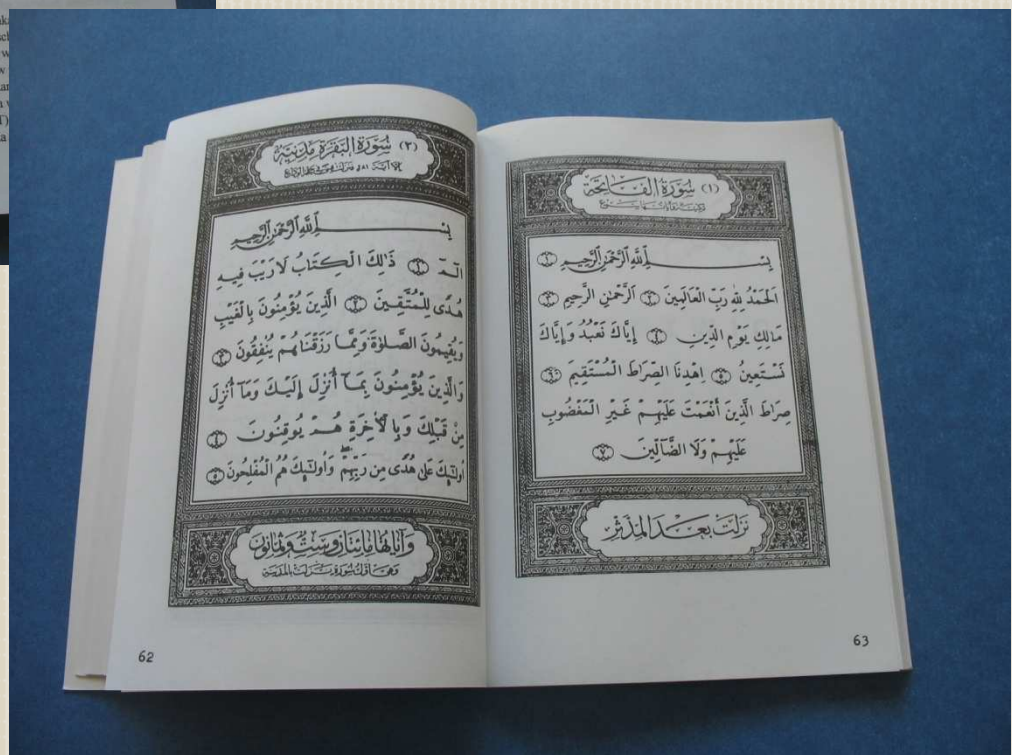 (١) سُورَةُ الفَاتِحَةِ
مكية وآياتها سبع
بِسْمِ ٱللَّهِ ٱلرَّحْمَٰنِ ٱلرَّحِيمِ ١
الْحَمْدُ لِلَّهِ رَبِّ الْعَالَمِينَ ٢ الرَّحْمَٰنِ الرَّحِيمِ ٣
مَالِكِ يَوْمِ الدِّينِ ٤ إِيَّاكَ نَعْبُدُ وَإِيَّاكَ
نَسْتَعِينُ ٥ اهْدِنَا الصِّرَاطَ الْمُسْتَقِيمَ ٦
صِرَاطَ الَّذِينَ أَنْعَمْتَ عَلَيْهِمْ غَيْرِ الْمَغْضُوبِ
عَلَيْهِمْ وَلَا الضَّآلِّينَ ٧
نزلت بعد المدثر
63
(٢) سُورَةُ البَقَرَةِ مَدَنِيَّة
إلا آية ٢٨١ فنزلت بمنى في حجة الوداع
بِسْمِ ٱللَّهِ ٱلرَّحْمَٰنِ ٱلرَّحِيمِ
الٓمٓ ١ ذَٰلِكَ الْكِتَابُ لَا رَيْبَ فِيهِ
هُدًى لِلْمُتَّقِينَ ٢ الَّذِينَ يُؤْمِنُونَ بِالْغَيْبِ
وَيُقِيمُونَ الصَّلَوٰةَ وَمِمَّا رَزَقْنَاهُمْ يُنْفِقُونَ ٣
وَالَّذِينَ يُؤْمِنُونَ بِمَآ أُنْزِلَ إِلَيْكَ وَمَآ أُنْزِلَ
مِنْ قَبْلِكَ وَبِالْآخِرَةِ هُمْ يُوقِنُونَ ٤
أُولَٰئِكَ عَلَىٰ هُدًى مِنْ رَبِّهِمْ وَأُولَٰئِكَ هُمُ الْمُفْلِحُونَ ٥
وآياتها مائتان وست وثمانون
وهي أول سورة نزلت بالمدينة
62